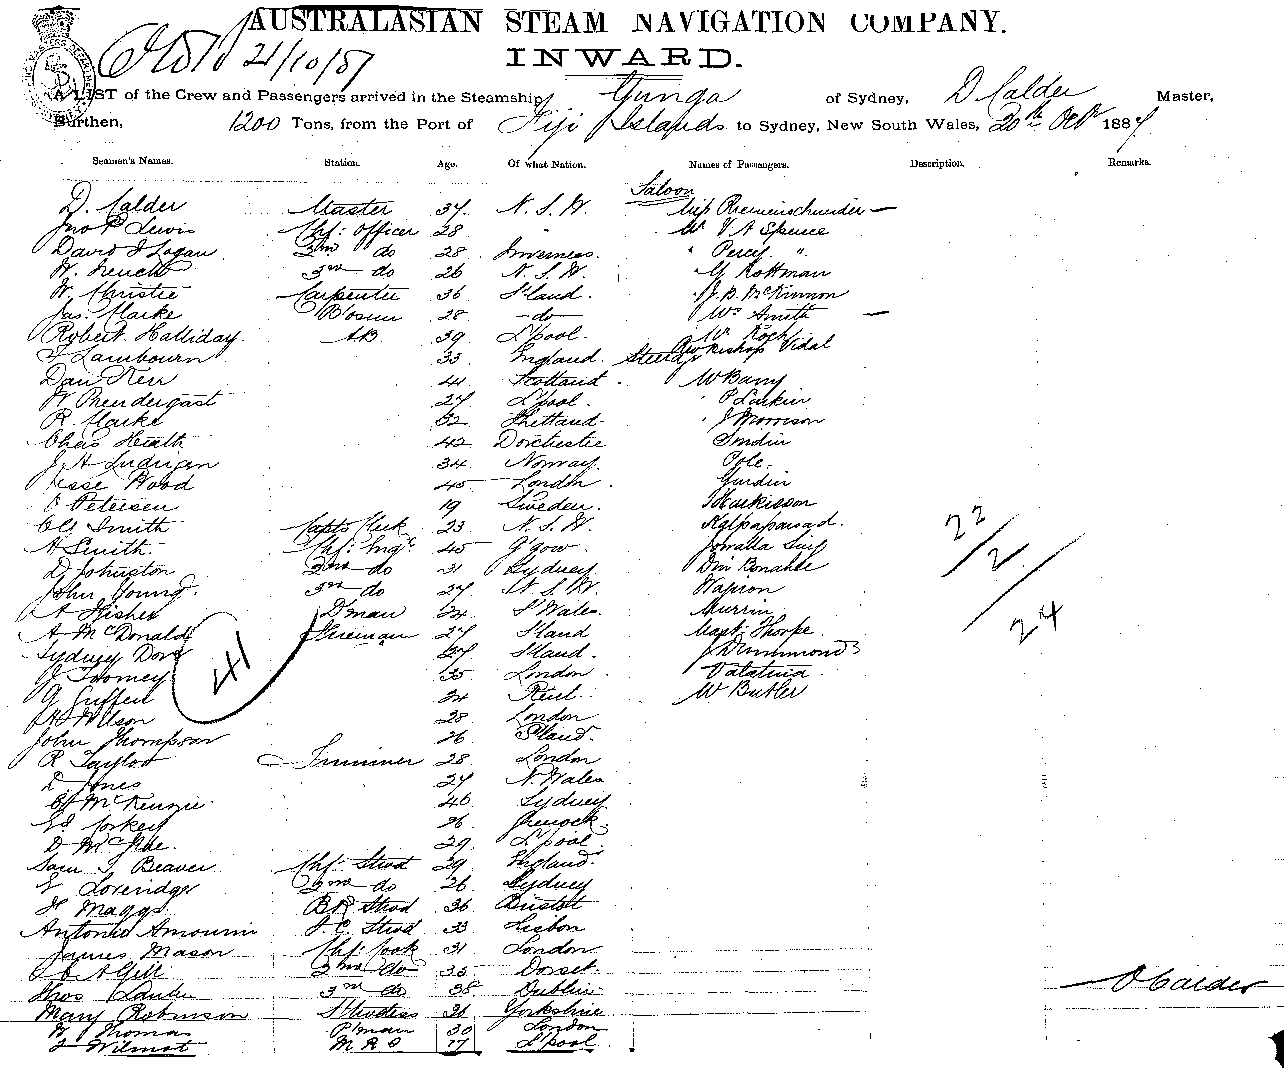 AUSTRALASIAN STEAM NAVIGATION COMPANY.
21/10/87
INWARD.
A LIST of the Crew and Passengers arrived in the Steamship Gunga of Sydney, D Calder Master,
Burthen, 1200 Tons, from the Port of Fiji Islands to Sydney, New South Wales, 20th Octr 1887
Seamen's Names. Station. Age. Of what Nation. Names of Passengers. Description. Remarks.
Saloon
D. Calder Master 37 N. S. W. Miss Riemenschneider —
Jno P Lewis Chf: Officer 28 " Mr V A Spence
David J Logan 2nd do 28 Inverness " Percy "
W. French 3rd do 26 N. S. W. G Kottman
W. Christie Carpenter 36 S'land. J. B. McKinnon
Jas. Clarke B'osun 28 - do - Wm Smith —
Robert Halliday AB 39 L'pool. W. Koch
Lambourn 33 England. Steerage Vidal
Dan Kerr 44 Scotland. W Barry
W Prendergast 27 L'pool. P Larkin
R. Clarke 32 Shetland. J Morrison
Chas Heath 42 Dorchester
J A Ludvigen 34 Norway. Pole.
Jesse Wood 45 London
Petersen 19 Sweden. Harkisson
C G Smith Capts Clerk 23 N. S. W.
22
A Smith. Chf: Engr 45 G'gow.
2
D, Johnston 2nd do 31 Sydney
John Young. 3rd do 27 N. S. W.
A Fisher D'man 24 S'Wales. Murrin
24
A McDonald Fireman 27 S'land Capt: Thorpe
Sydney Dove 27 S'land. J Drummond
41
J Toomey 35 London
G Giffen 24 W Butler
Wilson 28 London
John Thompson 26 S'land.
R Taylor Trimmer 28 London
D. Jones 27 N. Wales
McKenzie 46 Sydney
Corkey 26 Greenock.
D McPhee. 29 L'pool
Sam T Beaver Chf: Stwd 29 England
Loveridge 2nd do 26 Sydney
Maggs. BR Stwd 36 Bristol
Antonio Amourin F. C. Stwd 33 Lisbon
James Mason Chf: Cook 31 London
A Gill 2nd do 35 Dorset.
Thos Lauder 3rd do 38 Dublin
D Calder
Mary Robinson S'tewdess 36 Yorkshire
W Thomas P'man 30 London
Wilmot M R S 17 L'pool